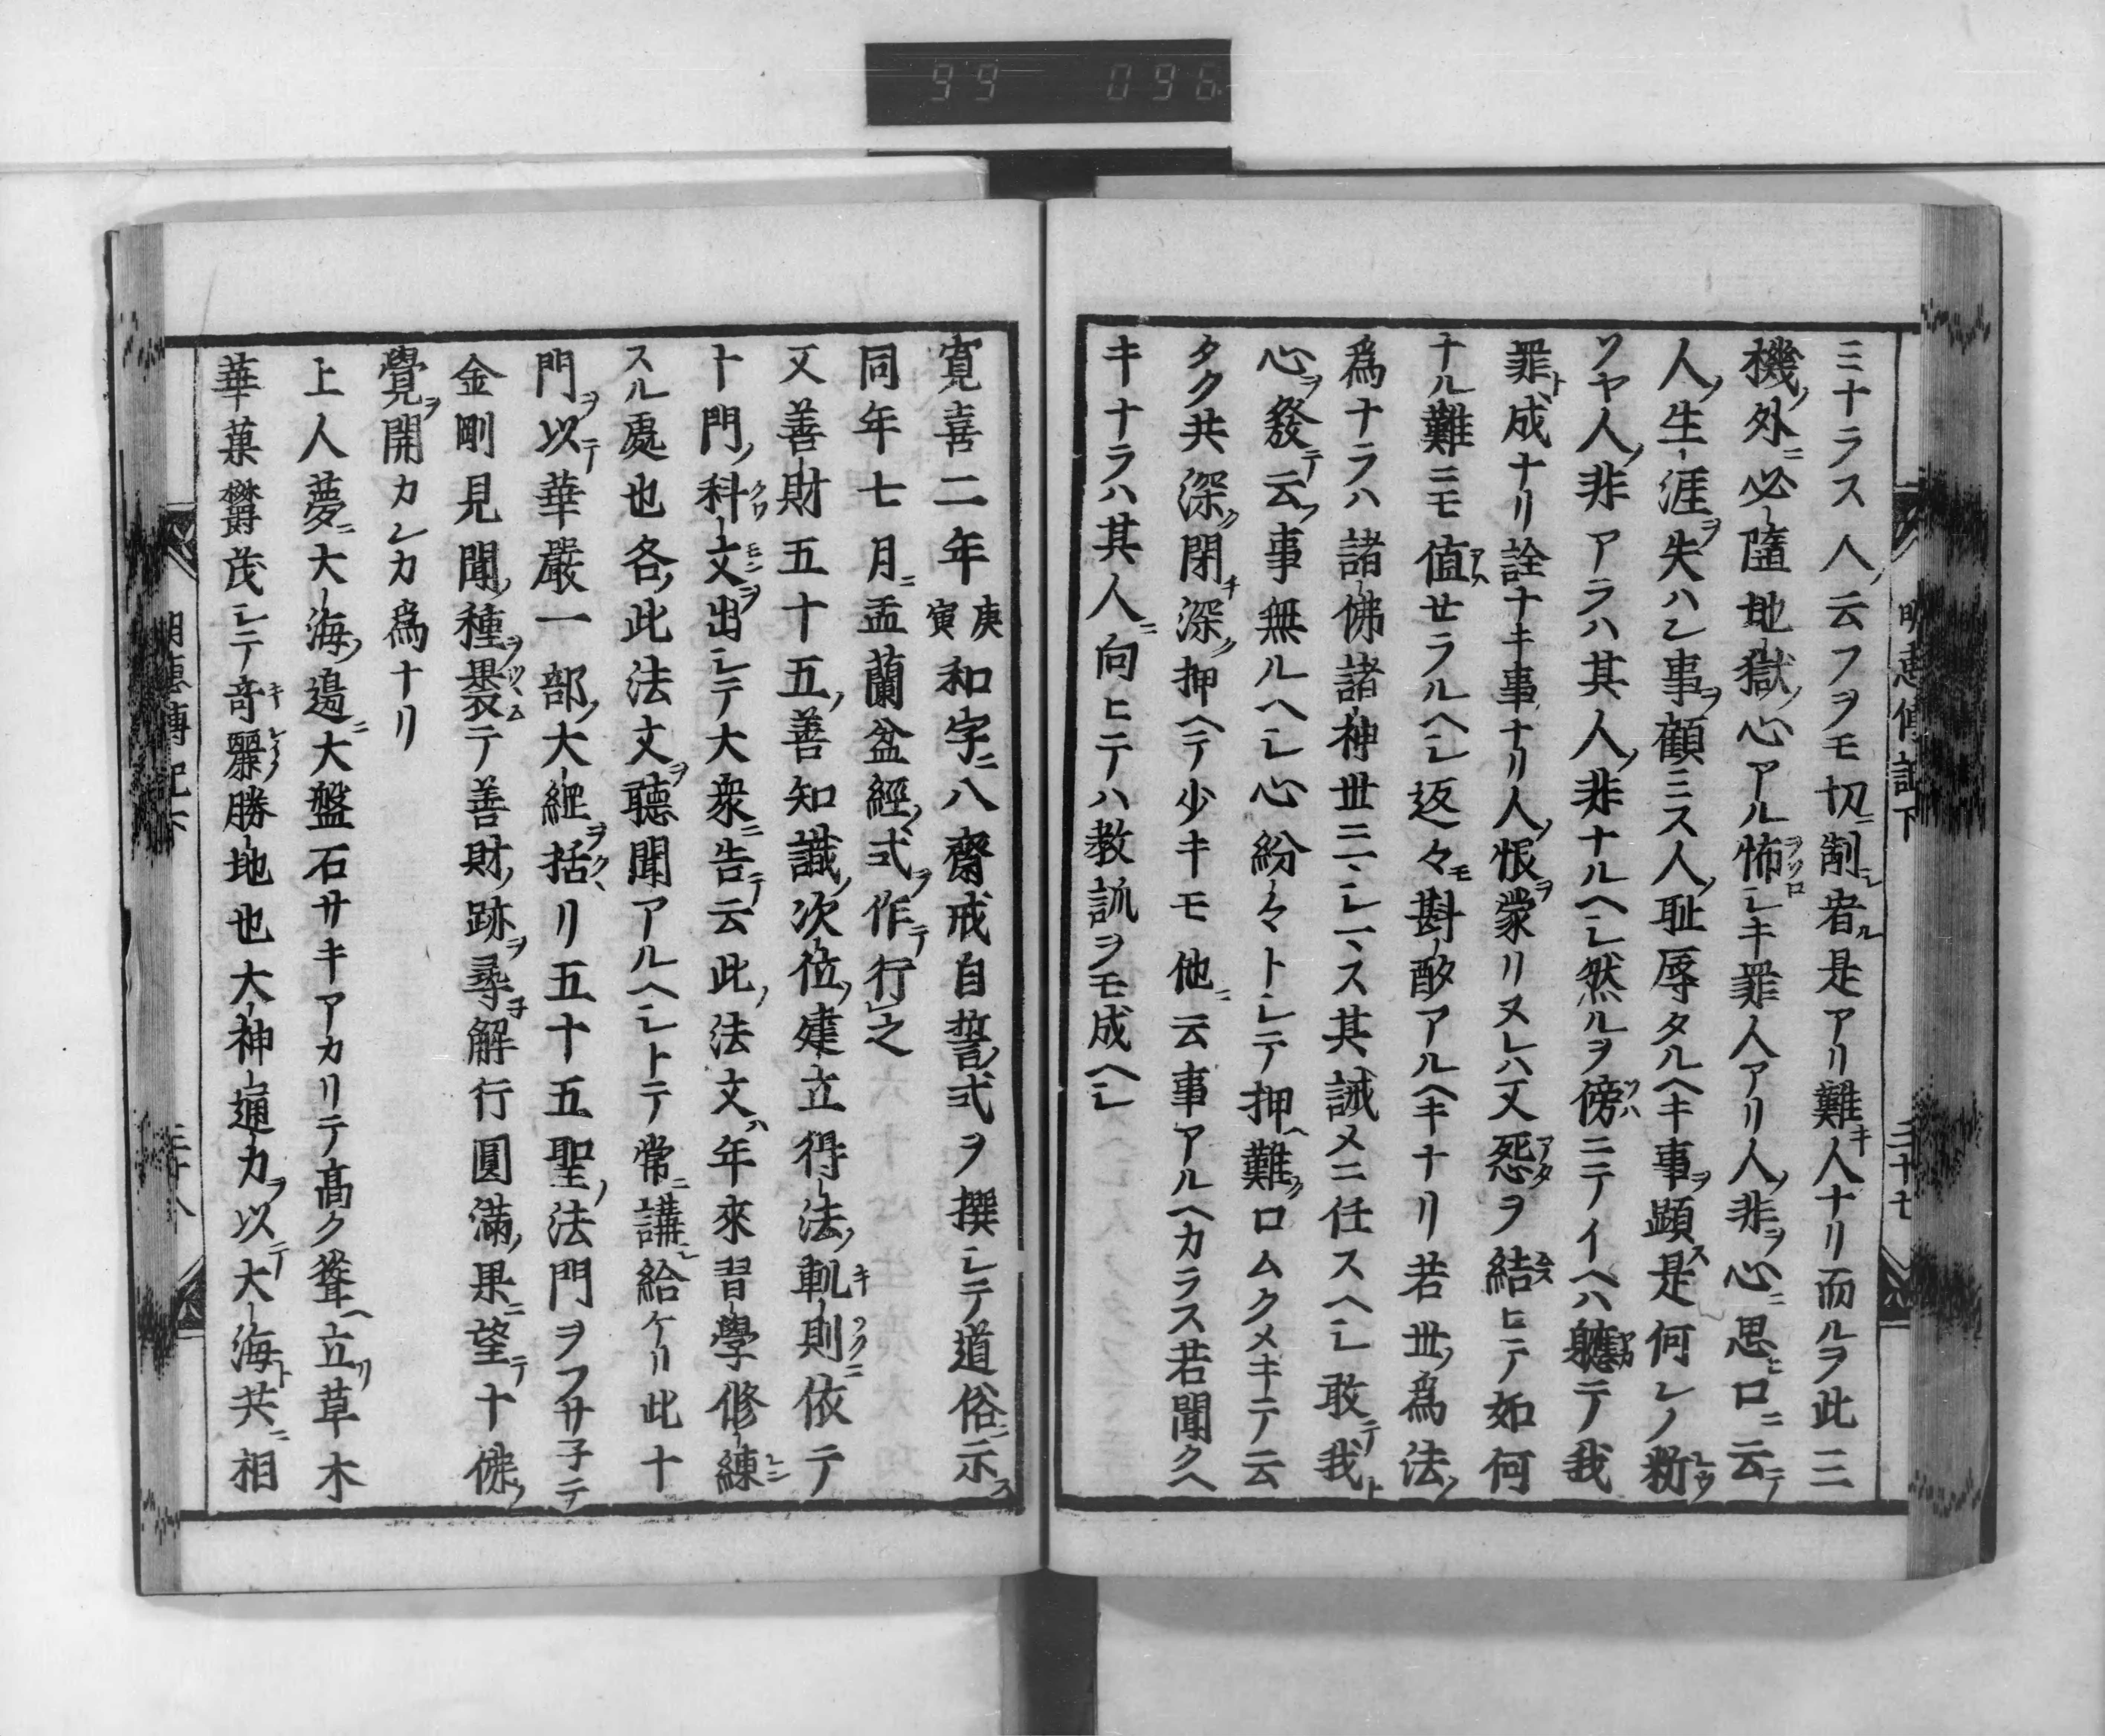 99 096
明恵傳記下
三十七
ミナラス人ノ云フヲモ切ニ制シ者ル是アリ難キ人ナリ而ルヲ此三
機ノ外ニ必隨地獄ノ心アル怖ヲソロシキ罪人アリ人ノ非ヲ心ニ思ヒ口ニ云テ
人ノ生涯ヲ失ハン事ヲ顧ミス人ノ耻辱タルヘキ事ヲ顕ス是何レノ断レウ
ソヤ人ノ非アラハ其人ノ非ナルヘシ然ルヲ傍ソハニテイヘハ聽テ我
罪ト成ナリ詮ナキ事ナリ人ノ恨ヲ蒙リヌレハ又怨アタヲ結ムスヒテ如何
ナル難ニモ値アハセラルヘシ返々モ斟酌アルヘキナリ若世ノ為法ノ
為ナラハ諸佛諸神世ニ二シ一ス其誡メニ任スヘシ敢テ我ト
心ヲ發テ云フ事無ルヘシ心紛々トシテ押ヘ難ク口ムクメキテ云
タク共深ク閉キ深ク押ヘテ少キモ他ニ云事アルヘカラス若聞クヘ
キナラハ其人ニ向ヒテハ教訓ヲモ成ヘシ
寛喜二年庚寅和字ニ八齋戒自誓ノ式ヲ撰シテ道俗ニ示ス
同年七月ニ盂蘭盆經ノ式ヲ作テ行之
又善財五十五ノ善知識ノ次位ノ建立得法ノ軌キ則ソクニ依テ
十門ノ科クワ文モンヲ出シテ大衆ニ告テ云此ノ法文ハ年來習學修練レン
スル處也各ノ此法文ヲ聽聞アルヘシトテ常ニ講シ給ケリ此十
門ヲ以テ華嚴一部ノ大經ヲ括クヽリ五十五聖ノ法門ヲフサ子テ
金剛見聞ノ種ヲ裹ツヽムテ善財ノ跡ヲ尋子解行圓滿ノ果ニ望テ十佛ノ
覺ヲ開カンカ為ナリ
上人夢ニ大海ノ邊ニ大盤石サキアカリテ高ク聳ヘ立リ草木
華菓欝茂シテ奇キ麗レイノ勝地也大神通力ヲ以テ大海ト共ニ相
明恵傳記下
三十八